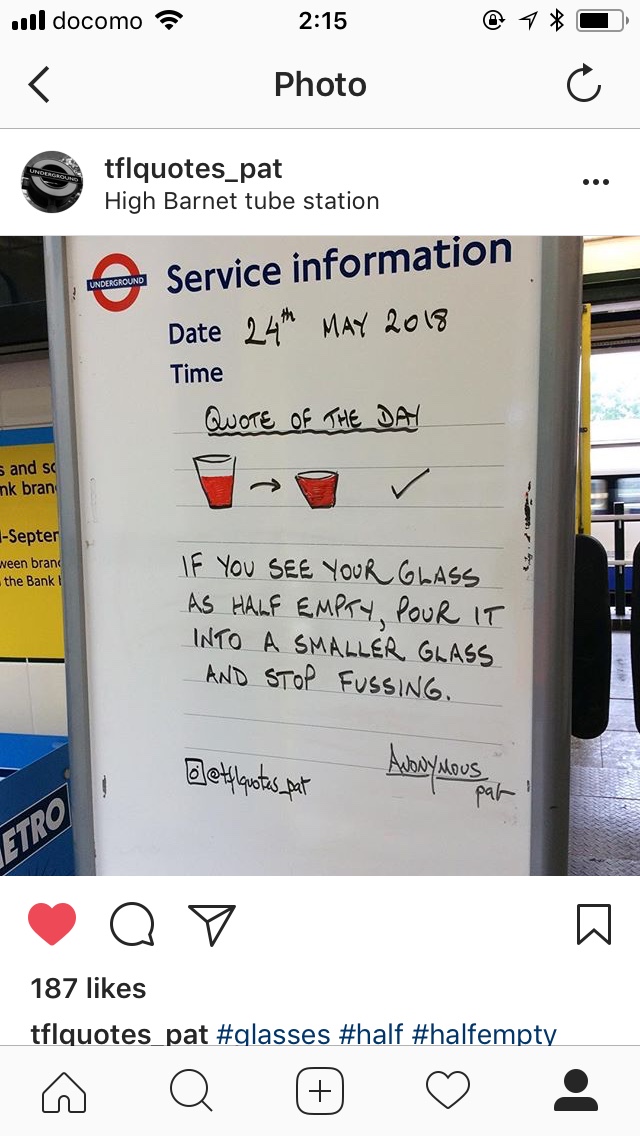 docomo 2:15
Photo
tflquotes_pat
High Barnet tube station
UNDERGROUND
UNDERGROUND Service information
Date 24th MAY 2018
Time
QUOTE OF THE DAY
IF YOU SEE YOUR GLASS
AS HALF EMPTY, POUR IT
INTO A SMALLER GLASS
AND STOP FUSSING.
@tflquotes_pat
ANONYMOUS
pat
s and
nk bran
-Septem
ween bran
the Bank
ETRO
187 likes
tflquotes_pat #glasses #half #halfempty